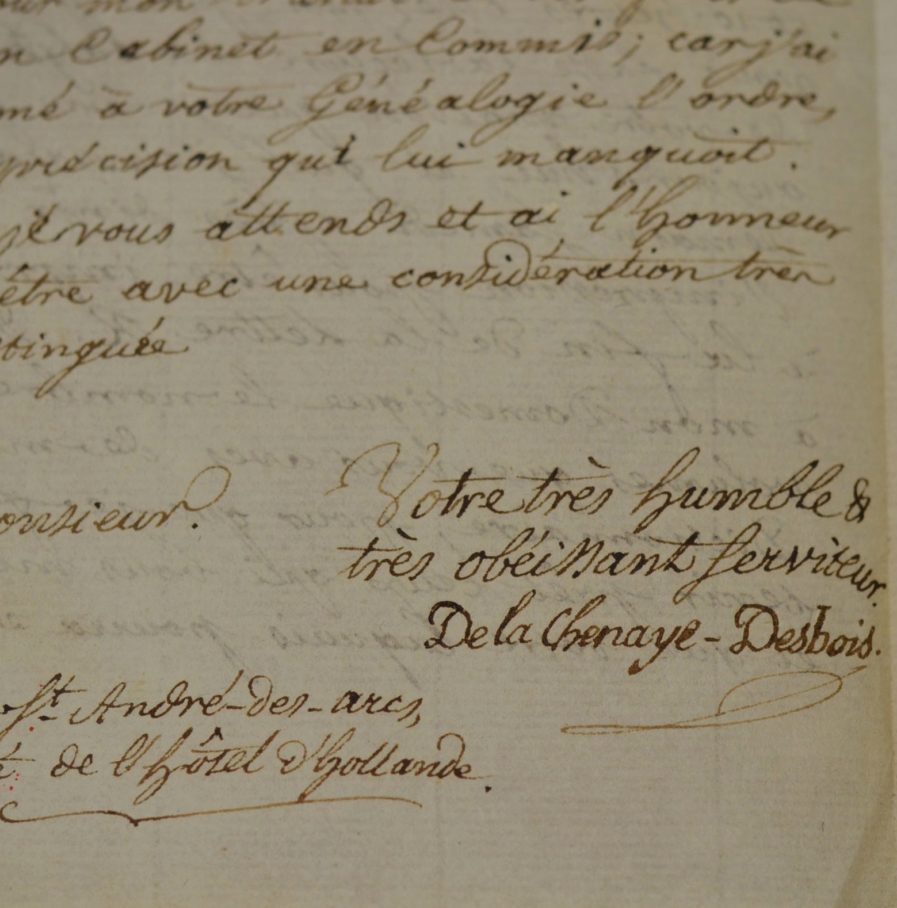 mon
n Cabinet en Commis; car j'ai
mé à votre Généalogie l'ordre,
précision qui lui manquoit.
je vous attends et ai l'honneur
être avec une considération très
tinguée
onsieur.
Votre très humble &
très obéissant serviteur.
De la Chenaye-Desbois.
St. André-des-arcs,
é de l'hôtel d'hollande.